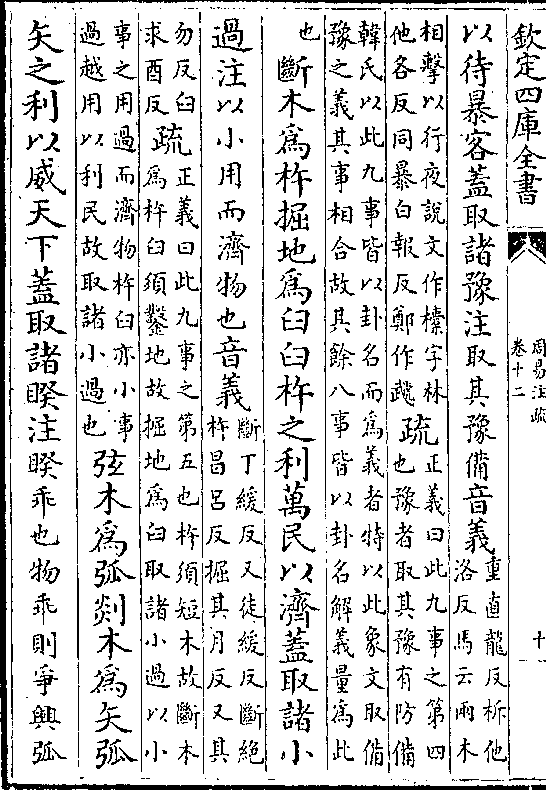 欽定四庫全書
周易注疏
卷十二
十
以待暴客蓋取諸豫注取其豫備音義
重直龍反柝他
洛反馬云兩木
相擊以行夜說文作㯓字林
他各反同暴白報反鄭作虣
疏
正義曰此九事之第四
也豫者取其豫有防備
韓氏以此九事皆以卦名而爲義者特以此象文取備
豫之義其事相合故其餘八事皆以卦名解義量爲此
也
斷木爲杵掘地爲臼臼杵之利萬民以濟蓋取諸小
過注以小用而濟物也音義
斷丁緩反又徒緩反斷絕
杵昌呂反掘其月反又其
勿反臼
求酉反
疏
正義曰此九事之第五也杵須短木故斷木
爲杵臼須鑿地故掘地爲臼取諸小過以小
事之用過而濟物杵臼亦小事
過越用以利民故取諸小過也
弦木爲弧剡木爲矢弧
矢之利以威天下蓋取諸睽注睽乖也物乖則爭興弧